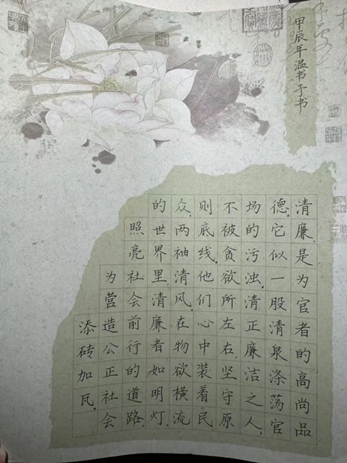 甲辰年温书书
清廉是为官者的高尚品
德,它似一股清泉涤荡官
场的污浊.清正廉洁之人,
不被贪欲所左右坚守原
则底线,他们心中装着民
众,两袖清风,在物欲横流
的世界里,清廉者如明灯,
照亮社会前行的道路,
为营造公正社会
添砖加瓦.